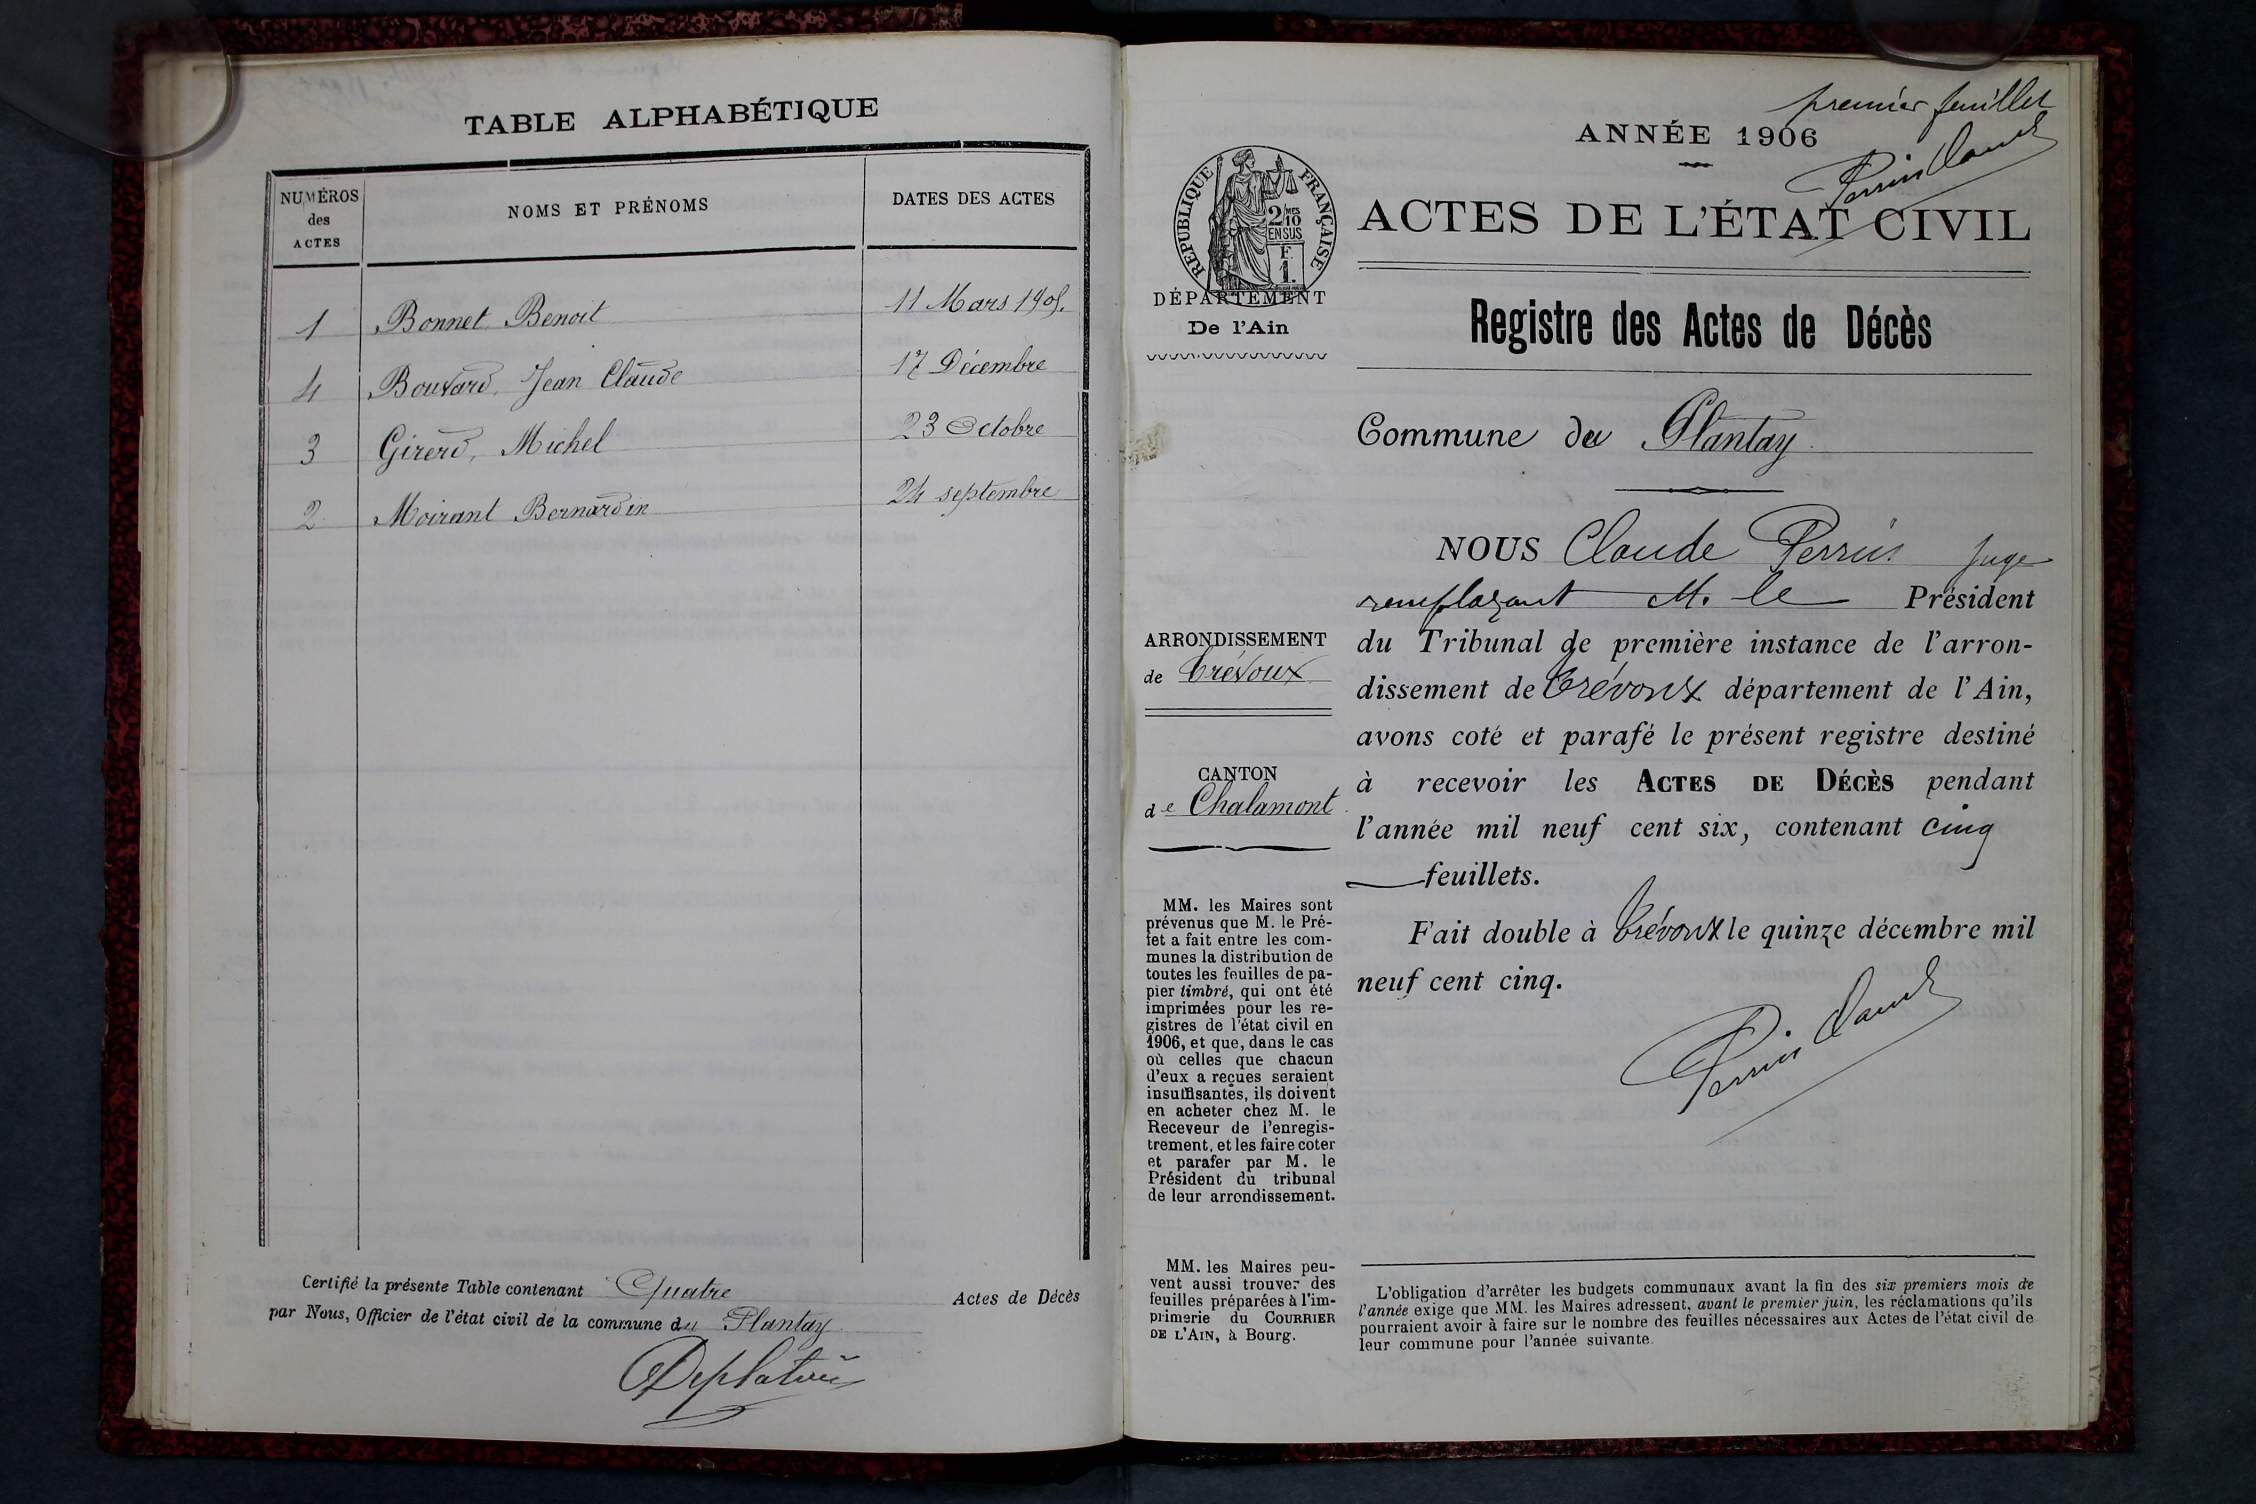 TABLE ALPHABÉTIQUE
NUMÉROS
des
ACTES
NOMS ET PRÉNOMS
DATES DES ACTES
1 Bonnet Benoit 11 Mars 1905.
4 Bouvard, Jean Claude 17 Décembre
3 Girerd, Michel 23 Octobre
2 Moirant Bernardin 24 septembre
Certifié la présente Table contenant Quatre Actes de Décès
par Nous, Officier de l'état civil de la commune du Plantay
premier feuillet
ANNÉE 1906
Perrin Claude
RÉPUBLIQUE FRANÇAISE
2/10 MES
EN SUS
F.
1.
ACTES DE L'ÉTAT CIVIL
DÉPARTEMENT
De l'Ain
Registre des Actes de Décès
Commune du Plantay
NOUS Claude Perrin Juge
remplaçant M. le Président
du Tribunal de première instance de l'arron-
dissement de Trévoux département de l'Ain,
avons coté et parafé le présent registre destiné
à recevoir les ACTES DE DÉCÈS pendant
l'année mil neuf cent six, contenant cinq
feuillets.
Fait double à Trévoux le quinze décembre mil
neuf cent cinq.
Perrin Claude
ARRONDISSEMENT
de Trévoux
CANTON
de Chalamont
MM. les Maires sont
prévenus que M. le Pré-
fet a fait entre les com-
munes la distribution de
toutes les feuilles de pa-
pier timbré, qui ont été
imprimées pour les re-
gistres de l'état civil en
1906, et que, dans le cas
où celles que chacun
d'eux a reçues seraient
insuffisantes, ils doivent
en acheter chez M. le
Receveur de l'enregis-
trement, et les faire coter
et parafer par M. le
Président du tribunal
de leur arrondissement.
MM. les Maires peu-
vent aussi trouver des
feuilles préparées à l'im-
primerie du COURRIER
DE L'AIN, à Bourg.
L'obligation d'arrêter les budgets communaux avant la fin des six premiers mois de
l'année exige que MM. les Maires adressent, avant le premier juin, les réclamations qu'ils
pourraient avoir à faire sur le nombre des feuilles nécessaires aux Actes de l'état civil de
leur commune pour l'année suivante.